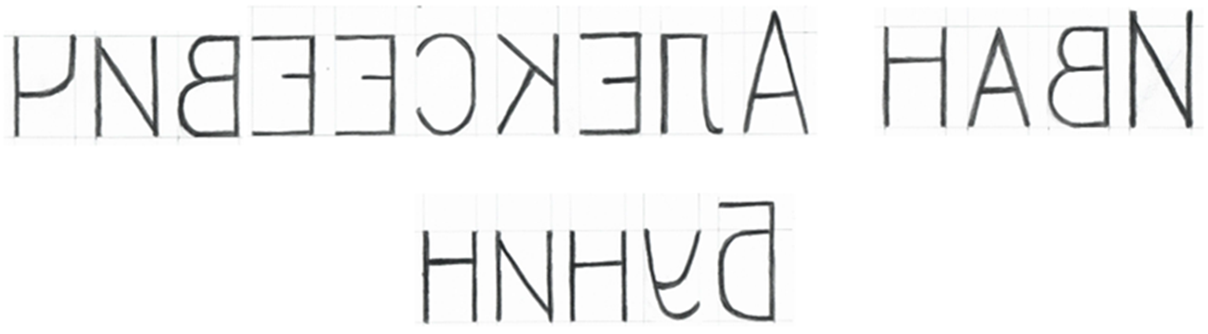 ИВАН АЛЕКСЕЕВИЧ
БУНИН